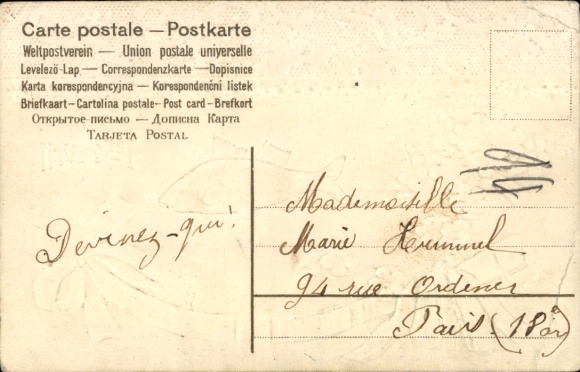 Carte postale — Postkarte
Weltpostverein — Union postale universelle
Levelező-Lap — Correspondenzkarte — Dopisnice
Karta korespondencyjna — Korespondenční lístek
Briefkaart — Cartolina postale — Post card — Brefkort
Открытое письмо — Дописна Карта
Tarjeta Postal
Devinez-qui!
Mademoiselle
Marie Hummel
94 rue Ordener
Paris (18 ar)